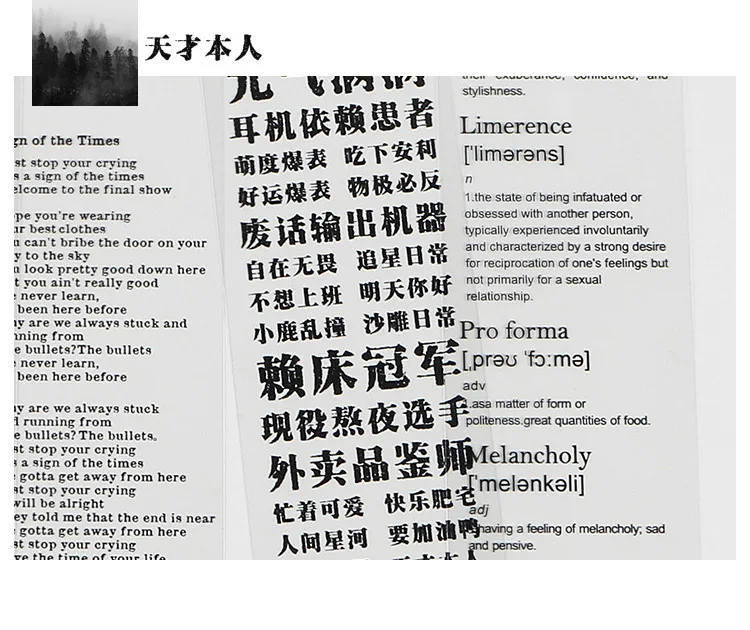 天才本人
gn of the Times
st stop your crying
s a sign of the times
elcome to the final show
pe you're wearing
ur best clothes
u can't bribe the door on your
y to the sky
u look pretty good down here
t you ain't really good
e never learn,
been here before
y are we always stuck and
nning from
e bullets?The bullets
e never learn,
been here before
y are we always stuck
d running from
e bullets? The bullets。
st stop your crying
s a sign of the times
gotta get away from here
st stop your crying
will be alright
ey told me that the end is near
gotta get away from here
st stop your crying
ve the time of your life
元气满满
耳机依赖患者
萌度爆表 吃下安利
好运爆表 物极必反
废话输出机器
自在无畏 追星日常
不想上班 明天你好
小鹿乱撞 沙雕日常
赖床冠军
现役熬夜选手
外卖品鉴师
忙着可爱 快乐肥宅
人间星河 要加油鸭
天才本人
their exuberance, confidence, and
stylishness.
Limerence
['limərəns]
n
1.the state of being infatuated or
obsessed with another person,
typically experienced involuntarily
and characterized by a strong desire
for reciprocation of one's feelings but
not primarily for a sexual
relationship.
Pro forma
[ˌprəʊ ˈfɔːmə]
adv
1.asa matter of form or
politeness.great quantities of food.
Melancholy
['melənkəli]
adj
having a feeling of melancholy; sad
and pensive.